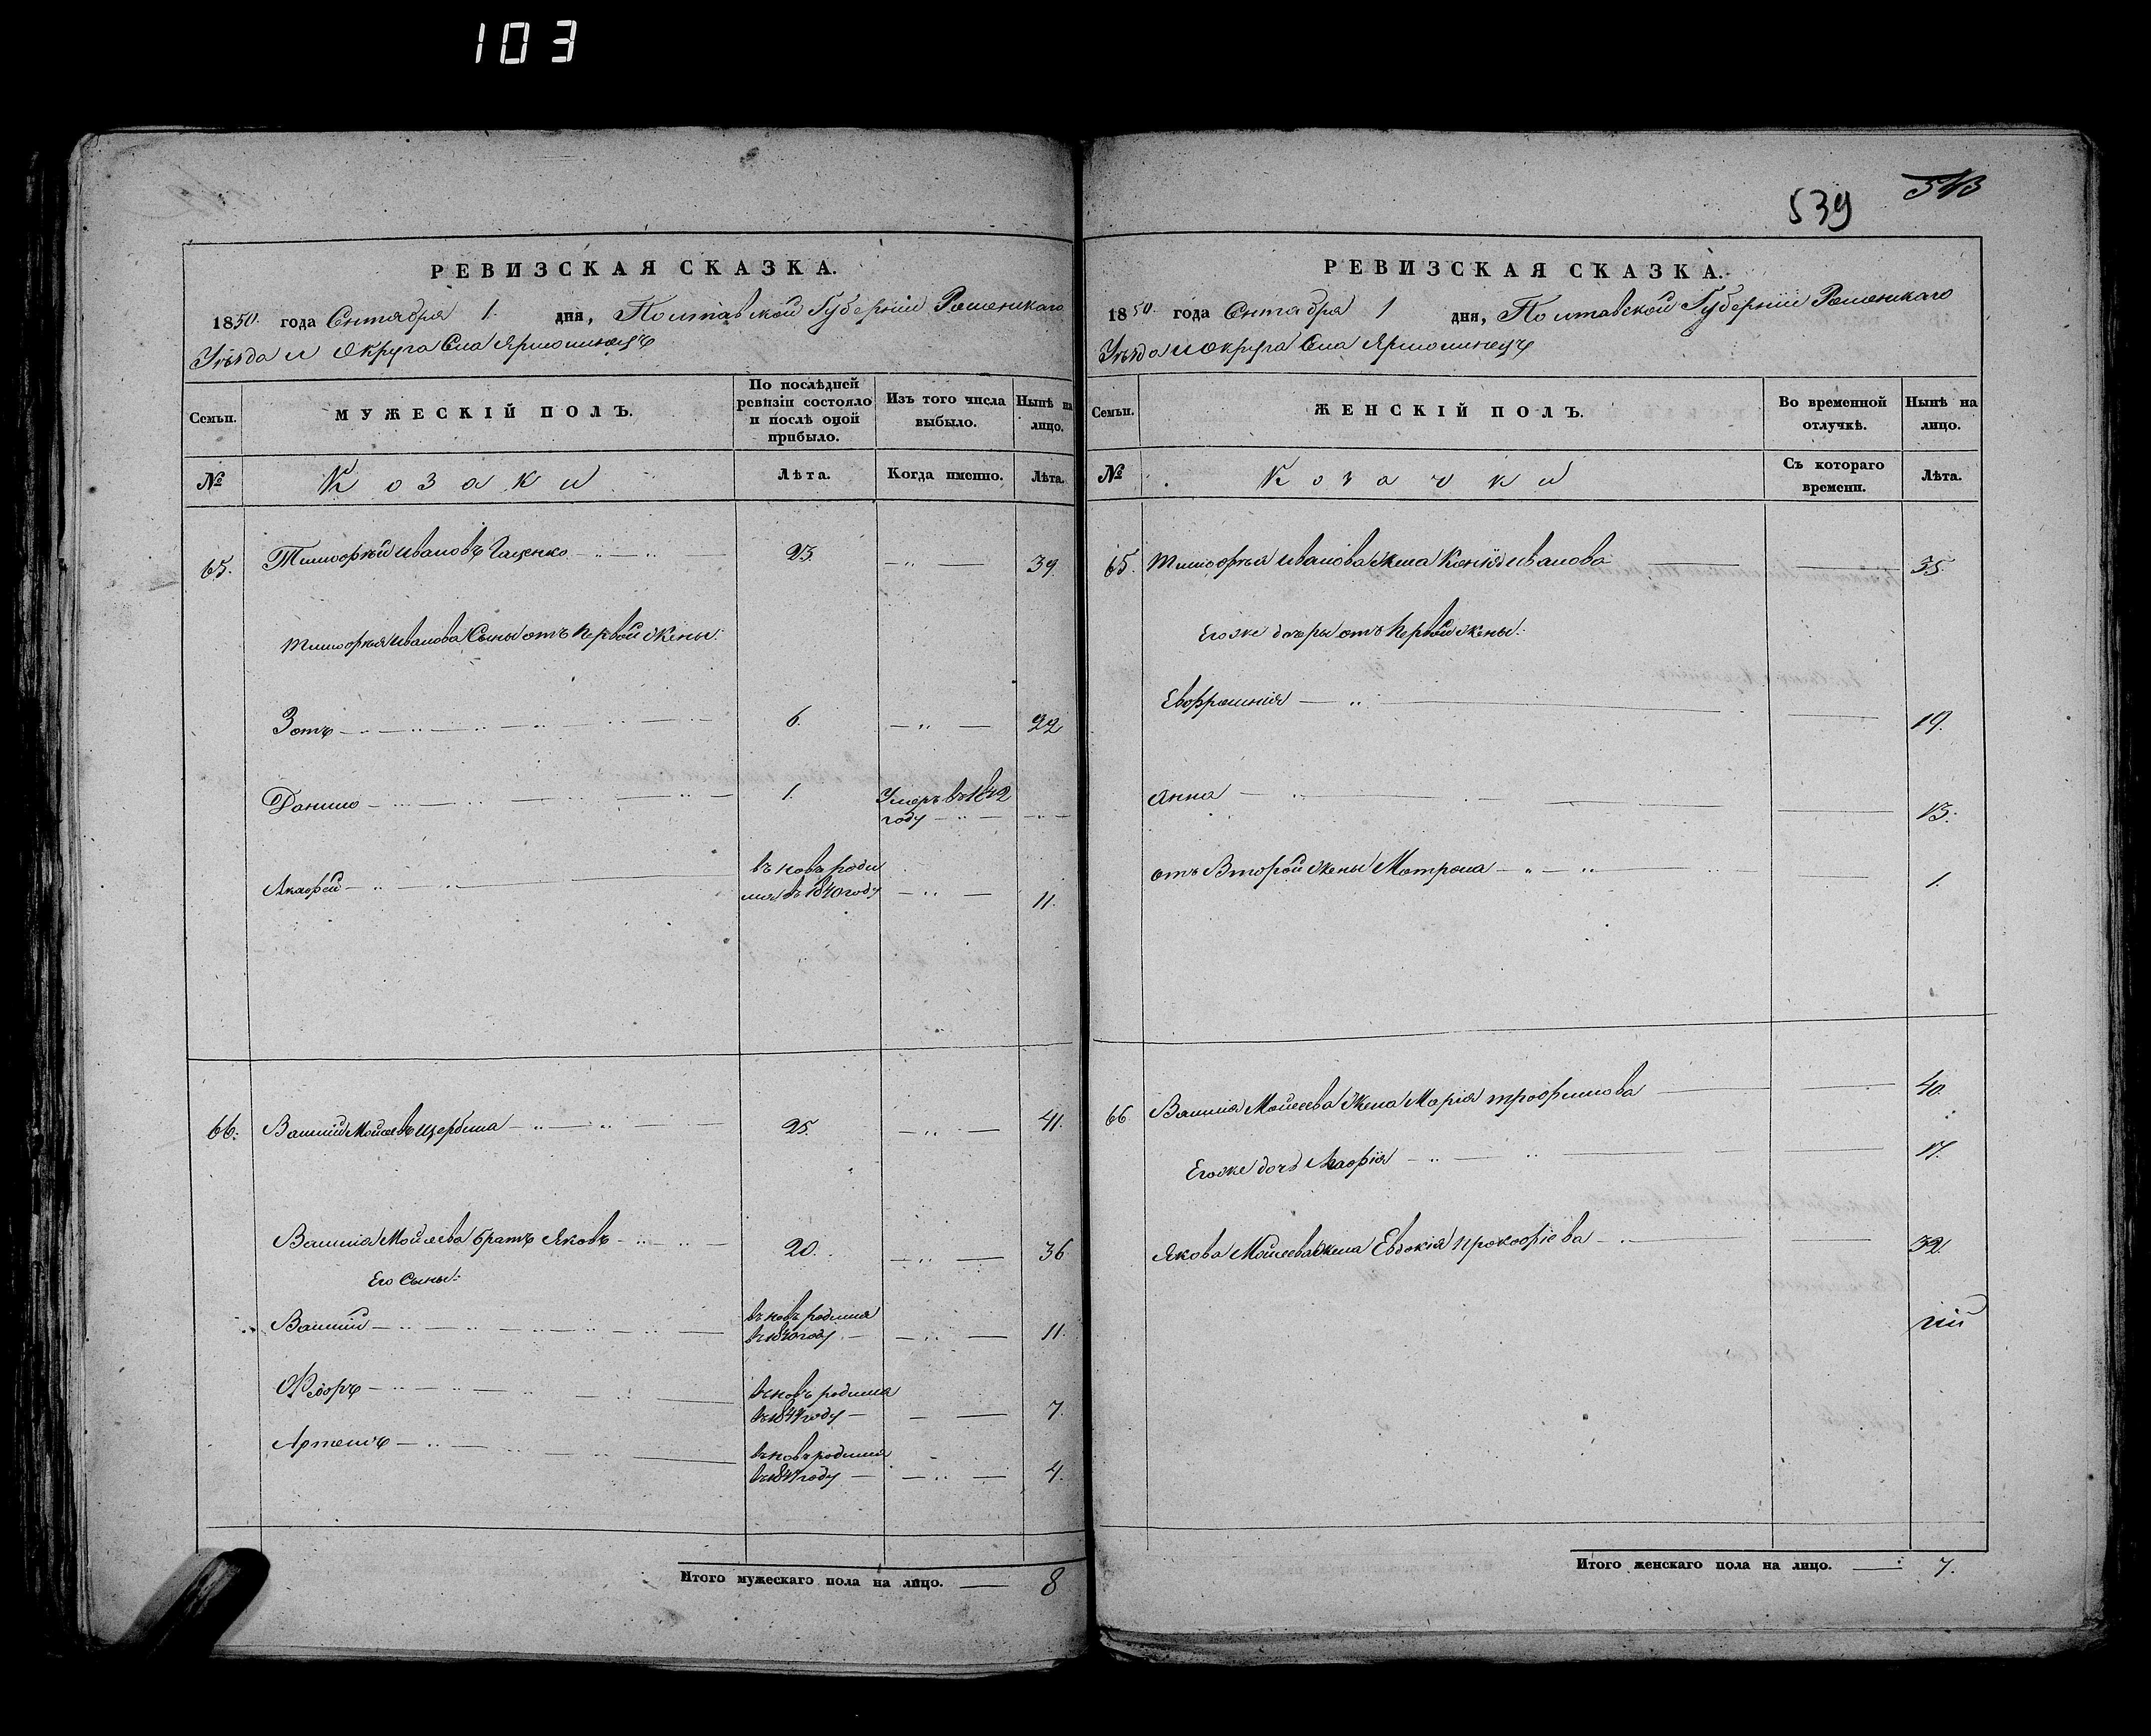 103
РЕВИЗСКАЯ СКАЗКА.
1850. года Сентября 1. дня, Полтавской Губерніи Роменскаго
Уѣзда и Округа Села Ярмолинецъ
Семьи. МУЖЕСКІЙ ПОЛЪ. По послѣдней ревизіи состояло и послѣ оной прибыло. Изъ того числа выбыло. Нынѣ на лицо.
№ Козаки Лѣта. Когда именно. Лѣта.
65. Тимофѣй Ивановъ Гаценко 23. 39.
Тимофѣя Иванова Сыны отъ первой жены:
Зотъ 6. 22
Данило 1. Умеръ въ 1842
году
Агафей въ новъ роди
лся въ 1840 году 11.
66. Василий Мойсеевъ Щербина 25. 41.
Василия Мойсеева братъ Яковъ 20. 36
Его Сыны:
Василий въ новъ родился
въ 1840 году 11.
Ѳедоръ въ новъ родился
въ 1844 году 7.
Артемъ въ новъ родился
въ 1847 году 4.
Итого мужескаго пола на лицо. 8
539 543
РЕВИЗСКАЯ СКАЗКА.
1850. года Сентября 1 дня, Полтавской Губерніи Роменскаго
Уѣзда и Округа Села Ярмолинецъ
Семьи. ЖЕНСКІЙ ПОЛЪ. Во временной отлучкѣ. Нынѣ на лицо.
№ Козачки Съ котораго времени. Лѣта.
65. Тимофѣя Иванова жена Иванова 35.
Егоже дочеры отъ первой жены:
Евфросинія 19.
Анна 13.
отъ Второй жены Матрона 1.
66. Василия Мойсеева жена Марія Трофимова 40.
Егоже дочь Агафія 17.
Якова Мойсеева жена Евдокія Прокофіева 32.
Итого женскаго пола на лицо. 7.